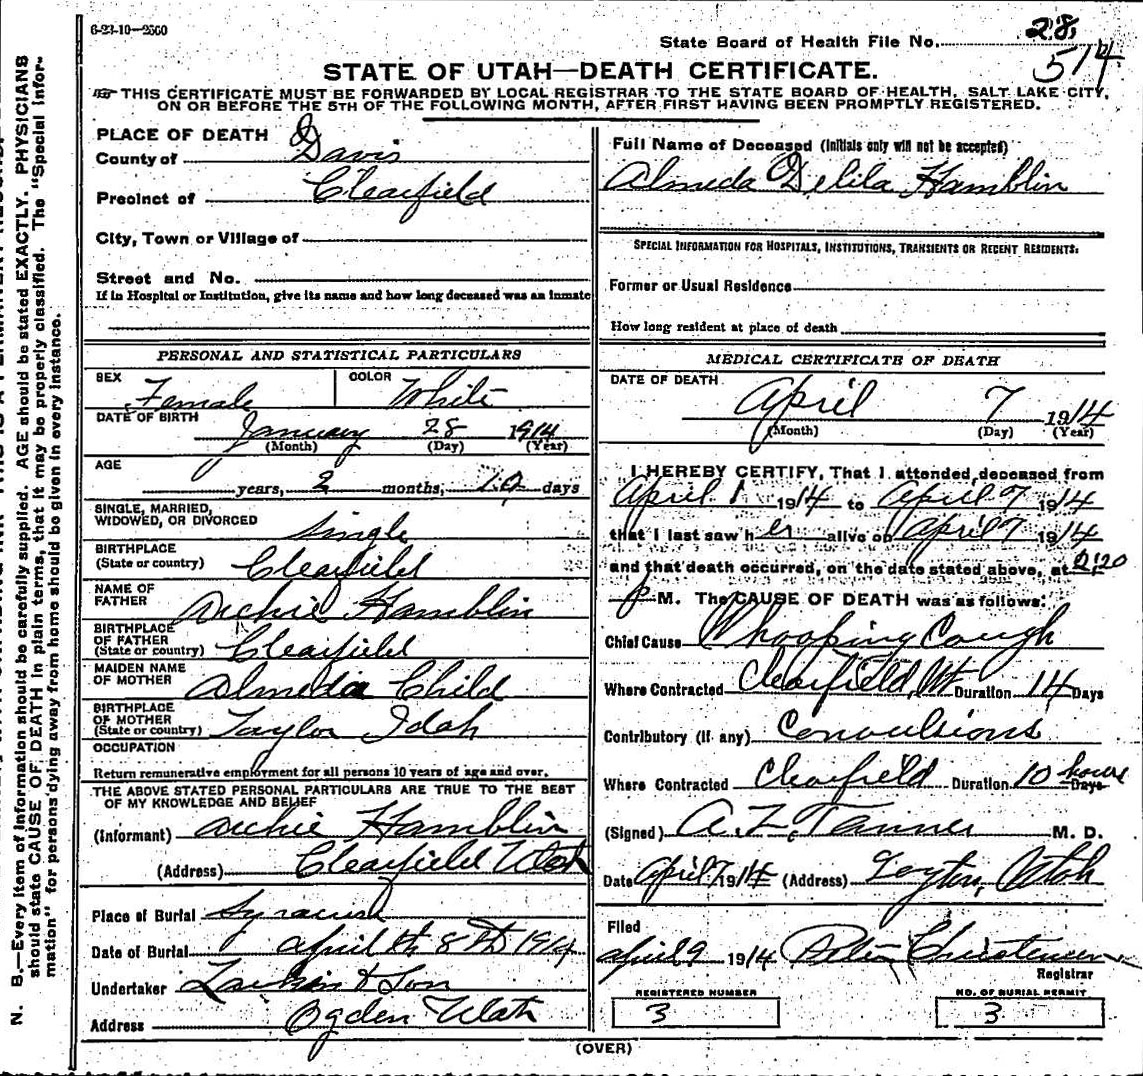 6-23-10-2500
State Board of Health File No. 28
514
STATE OF UTAH—DEATH CERTIFICATE.
THIS CERTIFICATE MUST BE FORWARDED BY LOCAL REGISTRAR TO THE STATE BOARD OF HEALTH, SALT LAKE CITY,
ON OR BEFORE THE 5TH OF THE FOLLOWING MONTH, AFTER FIRST HAVING BEEN PROMPTLY REGISTERED.
PLACE OF DEATH
County of Davis
Precinct of Clearfield
City, Town or Village of
Street and No.
If in Hospital or Institution, give its name and how long deceased was an inmate
PERSONAL AND STATISTICAL PARTICULARS
SEX Female COLOR White
DATE OF BIRTH January 28 1914
(Month) (Day) (Year)
AGE
years, 2 months, 10 days
SINGLE, MARRIED,
WIDOWED, OR DIVORCED Single
BIRTHPLACE
(State or country) Clearfield
NAME OF
FATHER Archie Hamblin
BIRTHPLACE
OF FATHER
(State or country) Clearfield
MAIDEN NAME
OF MOTHER Almeda Child
BIRTHPLACE
OF MOTHER
(State or country) Taylor Idah
OCCUPATION
Return remunerative employment for all persons 10 years of age and over.
THE ABOVE STATED PERSONAL PARTICULARS ARE TRUE TO THE BEST
OF MY KNOWLEDGE AND BELIEF
(Informant) Archie Hamblin
(Address) Clearfield Utah
Place of Burial Syracuse
Date of Burial April 8th 1914
Undertaker Larkin & Son
Address Ogden Utah
Full Name of Deceased (Initials only will not be accepted)
Almeda Delila Hamblin
SPECIAL INFORMATION FOR HOSPITALS, INSTITUTIONS, TRANSIENTS OR RECENT RESIDENTS.
Former or Usual Residence
How long resident at place of death
MEDICAL CERTIFICATE OF DEATH
DATE OF DEATH
April 7 1914
(Month) (Day) (Year)
I HEREBY CERTIFY, That I attended deceased from
April 1 1914 to April 7 1914
that I last saw her alive on April 7 1914
and that death occurred, on the date stated above, at
P M. The CAUSE OF DEATH was as follows:
Chief Cause Whooping Cough
Where Contracted Clearfield, Ut Duration 14 Days
Contributory (if any) Convulsions
Where Contracted Clearfield Duration 10 hours Days
(Signed) A. Z. Tanner M. D.
Date April 7 1914 (Address) Layton, Utah
Filed
April 9 1914 Christensen
Registrar
REGISTERED NUMBER
3
NO. OF BURIAL PERMIT
3
(OVER)
N. B.—Every item of information should be carefully supplied. AGE should be stated EXACTLY. PHYSICIANS
should state CAUSE OF DEATH in plain terms, that it may be properly classified. The "Special Infor-
mation" for persons dying away from home should be given in every instance.